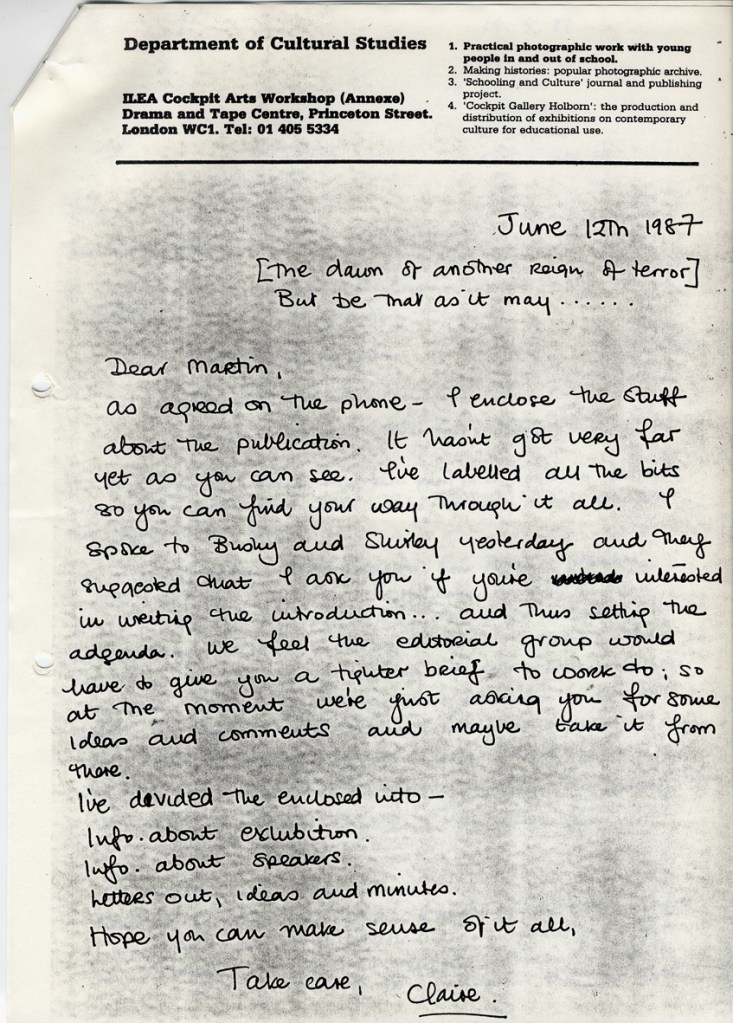 Department of Cultural Studies
ILEA Cockpit Arts Workshop (Annexe)
Drama and Tape Centre, Princeton Street.
London WC1. Tel: 01 405 5334
1. Practical photographic work with young
people in and out of school.
2. Making histories: popular photographic archive.
3. 'Schooling and Culture' journal and publishing
project.
4. 'Cockpit Gallery Holborn': the production and
distribution of exhibitions on contemporary
culture for educational use.
June 12th 1987
[The dawn of another reign of terror]
But be that as it may ......
Dear Martin,
as agreed on the phone – I enclose the stuff
about the publication. It hasn't got very far
yet as you can see. I've labelled all the bits
so you can find your way through it all. I
spoke to Bushy and Shirley yesterday and they
suggested that I ask you if you're interested
in writing the introduction... and thus setting the
adgenda. We feel the editorial group would
have to give you a tighter brief to work to; so
at the moment we're just asking you for some
ideas and comments and maybe take it from
there.
I've devided the enclosed into –
Info. about exhibition.
Info. about speakers.
Letters out, ideas and minutes.
Hope you can make sense of it all,
Take care,
Claire.